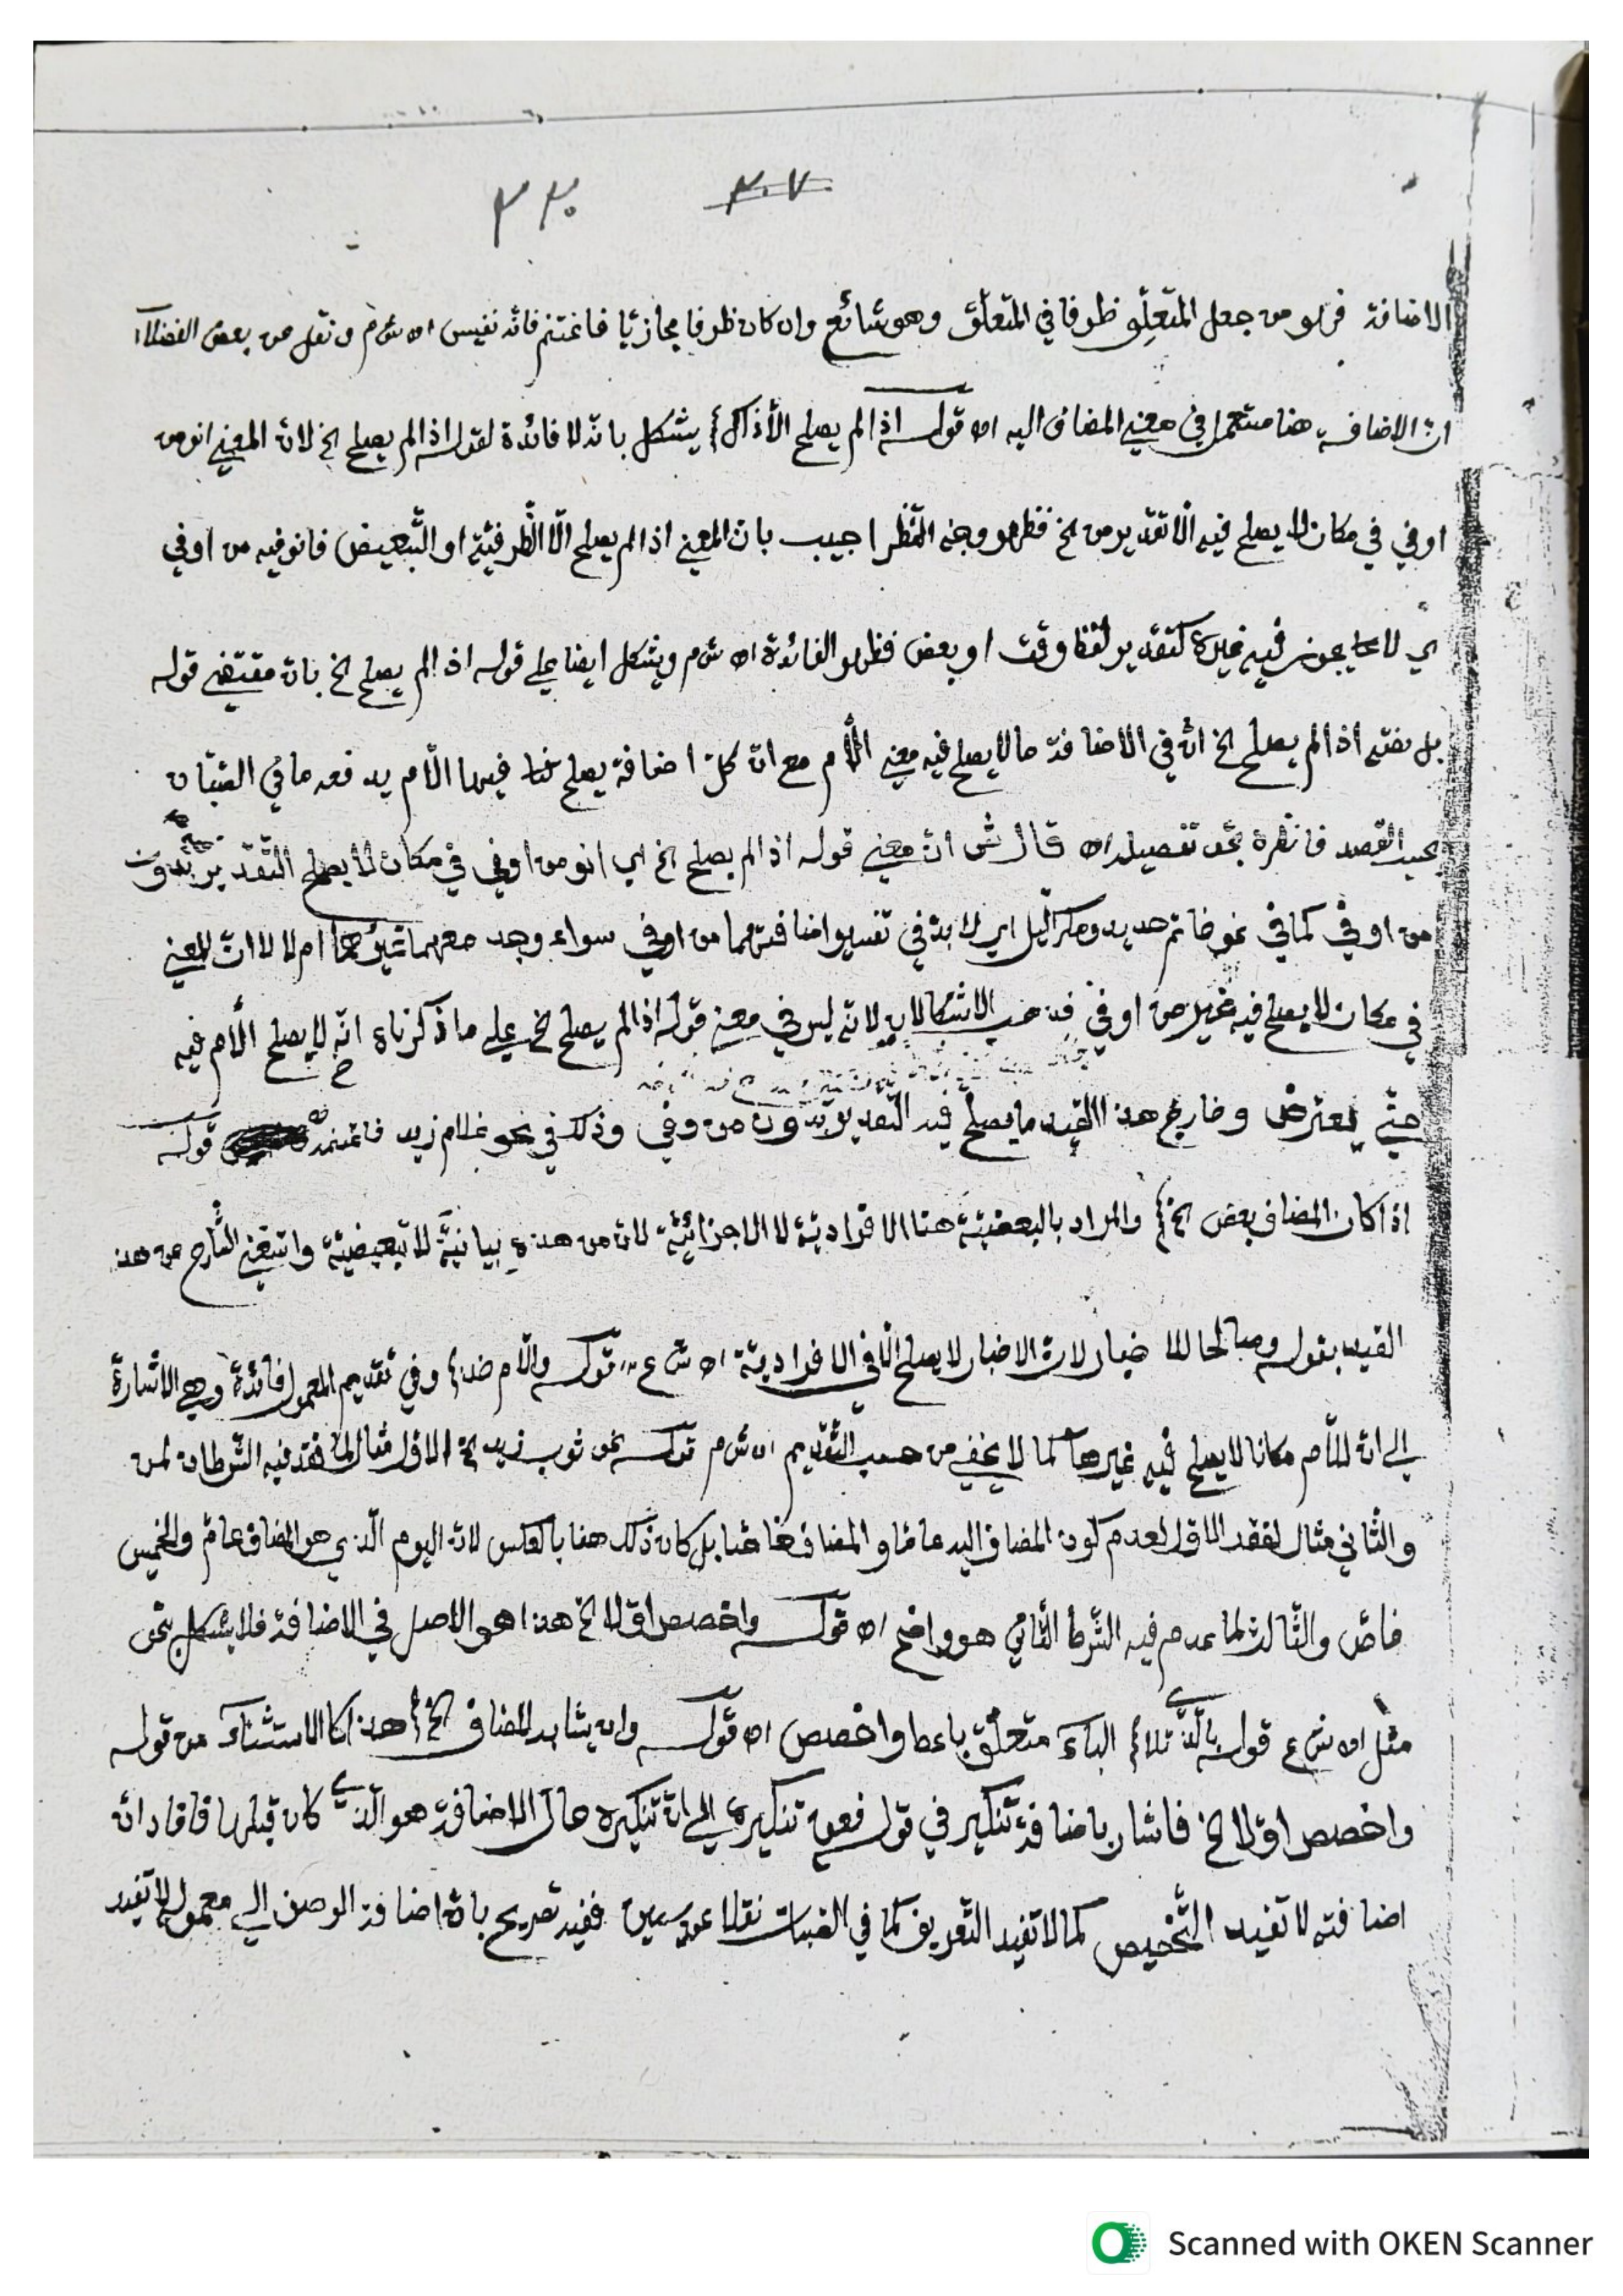 ٣٠٧ ٣٣٠
الاضافة فهو من جعل المتعلِّق ظرفا في المتعلَّق وهو شائع وان كان ظرفا مجازيّا فاغتنم فانّه نفيس اه ش م ونقل عن بعض الفضلاء
انّ الاضافة هنا مستعمل في معنى المضاف اليه اه قوله اذ الم يصلح الّا ذاك يشكل بانّه لا فائدة لقوله اذ الم يصلح الخ لانّ المعنى انو من
او في في مكان لا يصلح فيه الّا تقدير من الخ فظهر وجه النّظر اجيب بانّ المعنى اذ الم يصلح الّا الظّرفيّة او التّبعيض فانو فيه من او في
اي لا يجوز فيه غيره كتقدير لفظ وقت او بعض فظهر الفائدة اه ش م ويشكل ايضا على قوله اذ الم يصلح الخ بانّ مقتضى قوله
اذ الم يصلح الخ انّ في الاضافة ما لا يصلح فيه معنى اللّام مع انّ كلّ اضافة يصلح فيها اللّام يدفعه ما في الصّبّان
فانظره تفصيله اه قال ش انّ معنى قوله اذ الم يصلح الخ اي انو من او في في مكان لا يصلح التّقدير بدون
من او في كما في نحو خاتم حديد ومكر اللّيل اي لا بدّ في تفسير اضافتهما من او في سواء وجد معهما غيرهما ام لا لا انّ المعنى
في مكان لا يصلح فيه غير من او في الاشكالان لانّه ليس في معنى قوله اذ الم يصلح الخ على ما ذكرناه انّه لا يصلح اللّام فيه
حتّى يعترض وخارج هذا القيد ما يصلح فيه التّقدير بدون من وفي وذلك في نحو غلام زيد فاغتنمه قوله
اذا كان المضاف بعض الخ والمراد بالبعضيّة هنا الافراديّة لا الاجزائيّة لانّ من هذه بيانيّة لا تبعيضيّة واستغنى الشّارح عن هذا
القيد بقوله وصالحا للاخبار لانّ الاخبار لا يصلح الّا في الافراديّة اه ش ع قوله واللّام خذ وفي تقديم المعمول فائدة وهي الاشارة
الى انّ للّام مكانا لا يصلح فيه غيرها كما لا يخفى من حسب التّقديم اه ش م قوله نحو ثوب زيد الخ الاوّل مثال لما فقد فيه الشّرطان لمن
والثّاني مثال لفقد الاوّل لعدم كون المضاف اليه عامّا والمضاف خاصّا بل كان ذلك هنا بالعكس لانّ اليوم الّذي هو المضاف عامّ والخميس
خاصّ والثّالث لما عدم فيه الشّرط الثّاني هو واضح اه قوله واخصص اوّلا الخ هذا هو الاصل في الاضافة فلا يشكل بنحو
مثل اه ش ع قوله بالّذي تلا الباء متعلّق باعط واخصص اه قوله وان يشابه المضاف الخ هذا كالاستثناء من قوله
واخصص اوّلا الخ فاشار باضافة تنكير في قوله فعن تنكيره الى انّ تنكيره حال الاضافة هو الّذي كان قبلها فافاد انّ
اضافته لا تفيد التّخصيص كما لا تفيد التّعريف كما في الصّبان نقلا عن سين ففيه تصريح بانّ اضافة الوصف الى معموله لا تفيد
Scanned with OKEN Scanner